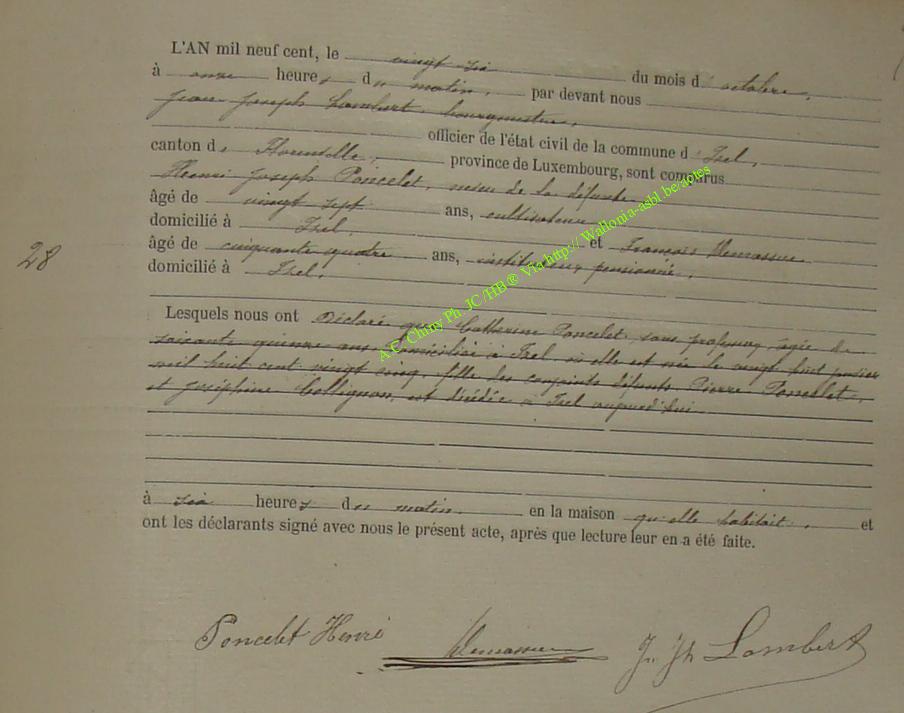 L'AN mil neuf cent, le vingt six du mois d'octobre,
à onze heures du matin, par devant nous
Jean Joseph Lambert, bourgmestre,
officier de l'état civil de la commune d'Izel,
canton de Florenville, province de Luxembourg, sont comparus
Henri Joseph Poncelet, neveu de la défunte
âgé de vingt sept ans, cultivateur
domicilié à Izel, et François Hemassue
âgé de cinquante quatre ans, instituteur pensionné,
domicilié à Izel,
28
Lesquels nous ont déclaré que Catherine Poncelet, sans profession, âgée de
soixante quinze ans, domiciliée à Izel où elle est née le vingt huit janvier
mil huit cent vingt cinq, fille des conjoints défunts Pierre Poncelet,
et Joséphine Collignon, est décédée à Izel aujourd'hui
à six heures du matin en la maison qu'elle habitait, et
ont les déclarants signé avec nous le présent acte, après que lecture leur en a été faite.
Poncelet Henri
J. Jh Lambert
A.C. Chiny Ph. JC/HB® Via http://Wallonia-asbl.be/actes